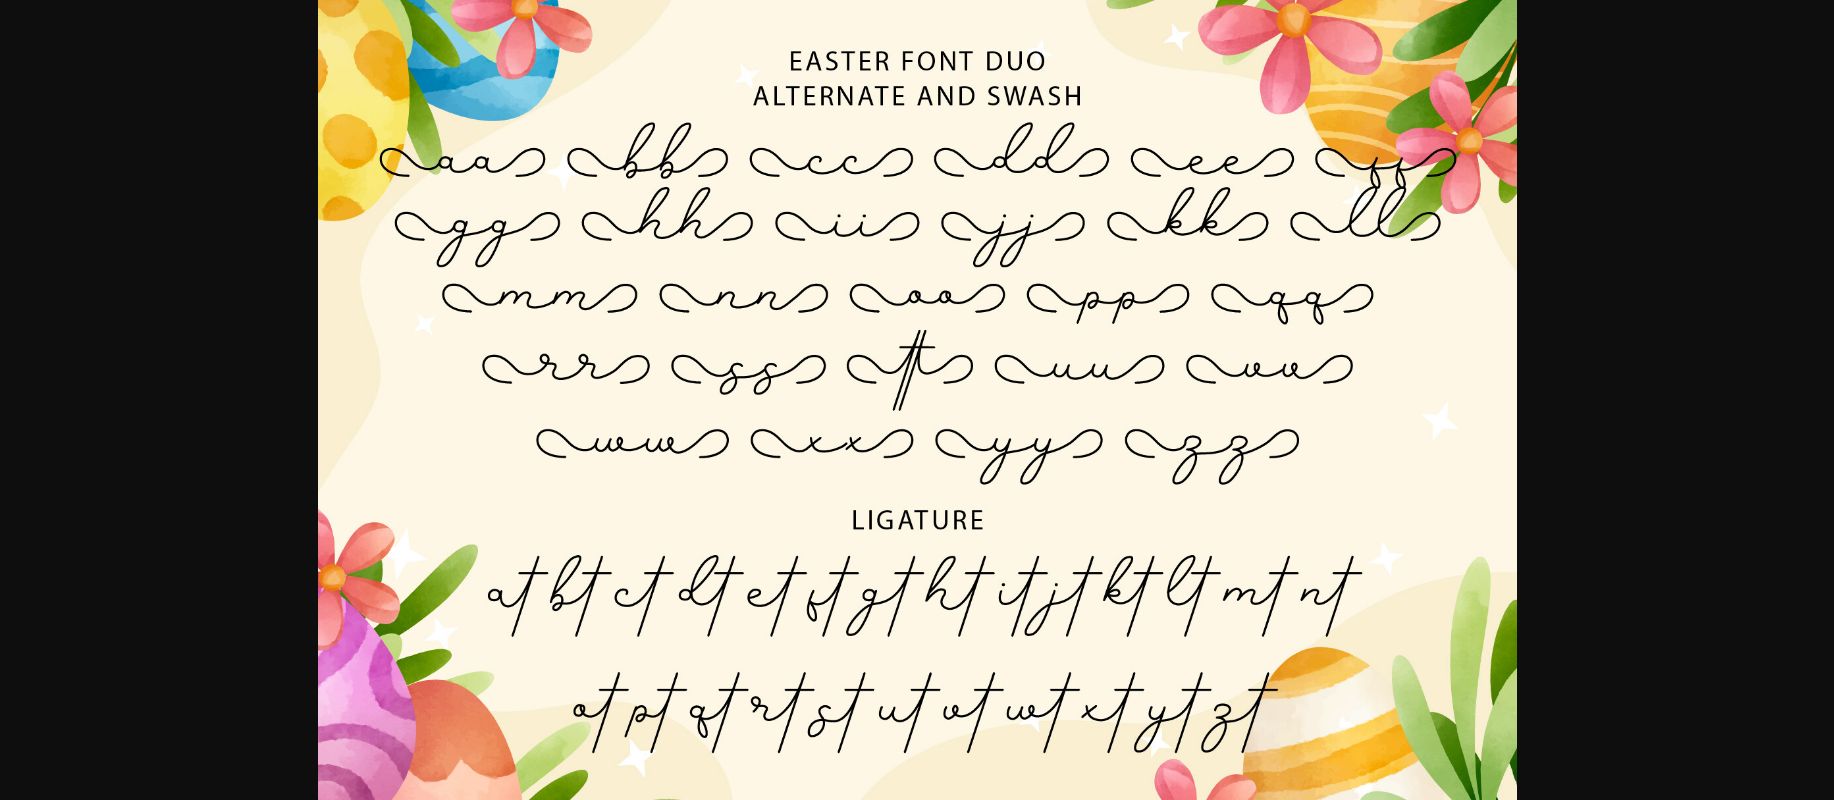 EASTER FONT DUO
ALTERNATE AND SWASH
aa bb cc dd ee ff
gg hh ii jj kk ll
mm nn oo pp qq
rr ss tt uu vv
ww xx yy zz
LIGATURE
at bt ct dt et ft gt ht it jt kt lt mt nt
ot pt qt rt st ut vt wt xt yt zt